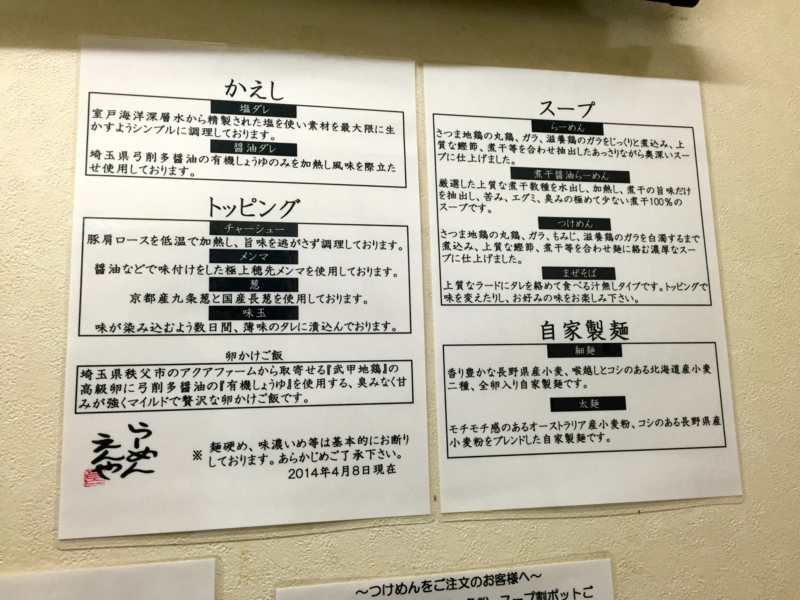 かえし
塩ダレ
室戸海洋深層水から精製された塩を使い素材を最大限に生
かすようシンプルに調理しております。
醤油ダレ
埼玉県弓削多醤油の有機しょうゆのみを加熱し風味を際立た
せ使用しております。
トッピング
チャーシュー
豚肩ロースを低温で加熱し、旨味を逃がさず調理しております。
メンマ
醤油などで味付けをした極上穂先メンマを使用しております。
葱
京都産九条葱と国産長葱を使用しております。
味玉
味が染み込むよう数日間、薄味のタレに漬込んでおります。
卵かけご飯
埼玉県秩父市のアクアファームから取寄せる『武甲地鶏』の
高級卵に弓削多醤油の『有機しょうゆ』を使用する、臭みなく甘
みが強くマイルドで贅沢な卵かけご飯です。
らーめん
えんや
※ 麺硬め、味濃いめ等は基本的にお断り
しております。あらかじめご了承下さい。
2014年4月8日現在
スープ
らーめん
さつま地鶏の丸鶏、ガラ、滋養鶏のガラをじっくりと煮込み、上
質な鰹節、煮干等を合わせ抽出したあっさりながら奥深いスー
プに仕上げました。
煮干醤油らーめん
厳選した上質な煮干数種を水出し、加熱し、煮干の旨味だけ
を抽出し、苦み、エグミ、臭みの極めて少ない煮干100%の
スープです。
つけめん
さつま地鶏の丸鶏、ガラ、もみじ、滋養鶏のガラを白濁するまで
煮込み、上質な鰹節、煮干等を合わせ麺に絡む濃厚なスー
プに仕上げました。
まぜそば
上質なラードにタレを絡めて食べる汁無しタイプです。トッピングで
味を変えたりし、お好みの味をお楽しみ下さい。
自家製麺
細麺
香り豊かな長野県産小麦、喉越しとコシのある北海道産小麦
二種、全卵入り自家製麺です。
太麺
モチモチ感のあるオーストラリア産小麦粉、コシのある長野県産
小麦粉をブレンドした自家製麺です。
～つけめんをご注文のお客様へ～
スープ割ポットご